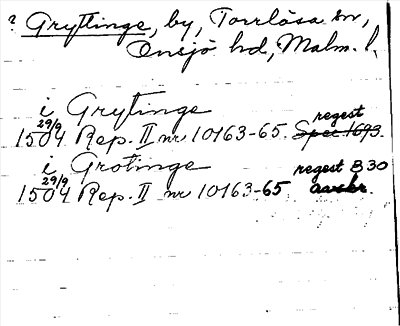 ? Gryttinge, by, Torrlösa sn,
Onsjö hd, Malm. l.
i Grytinge
29/9 1504 Rep. II nr 10163-65. regest Spec 1693.
i Grotinge
29/9 1504 Rep. II nr 10163-65 regest B 30